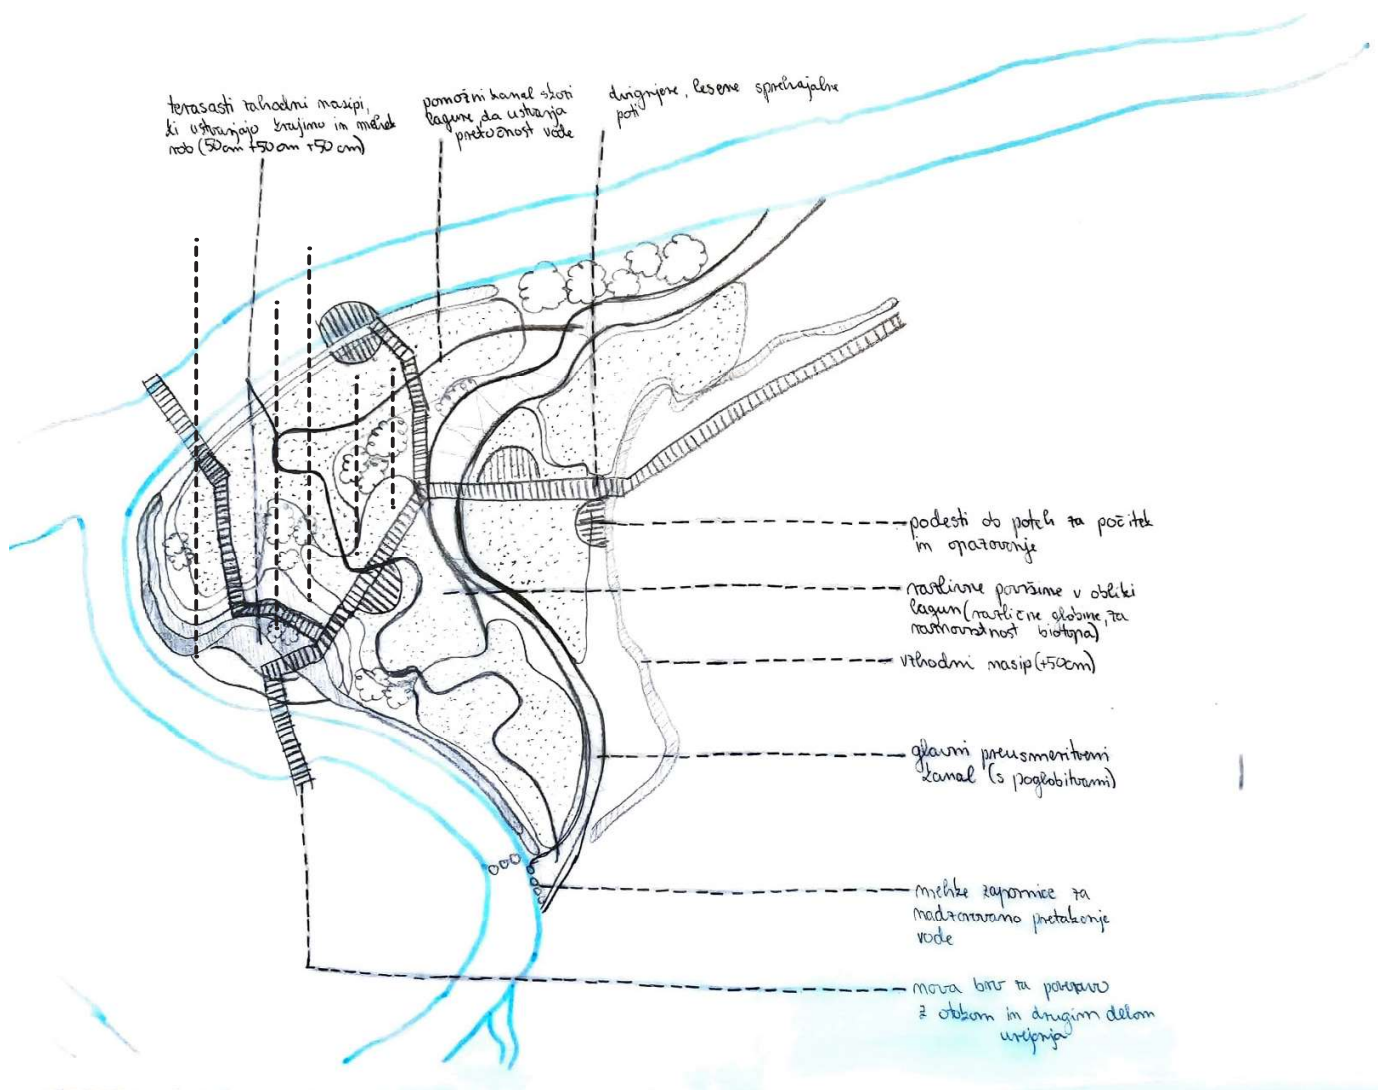 terasasti zahodni nasipi,
ki ustvarjajo krajino in mehek
rob (50cm +50cm +50cm)
pomožni kanal skozi
lagune, da ustvarja
pretočnost vode
dvignjene, lesene sprehajalne
poti
podesti ob poteh za počitek
in opazovanje
razlivne površine v obliki
lagun (različne globine, za
raznovrstnost biotopa)
vzhodni nasip (+50cm)
glavni preusmeritveni
kanal (s poglobitvami)
mehke zapornice za
nadzorovano pretakanje
vode
nova brv za povezavo
z otokom in drugim delom
urejanja